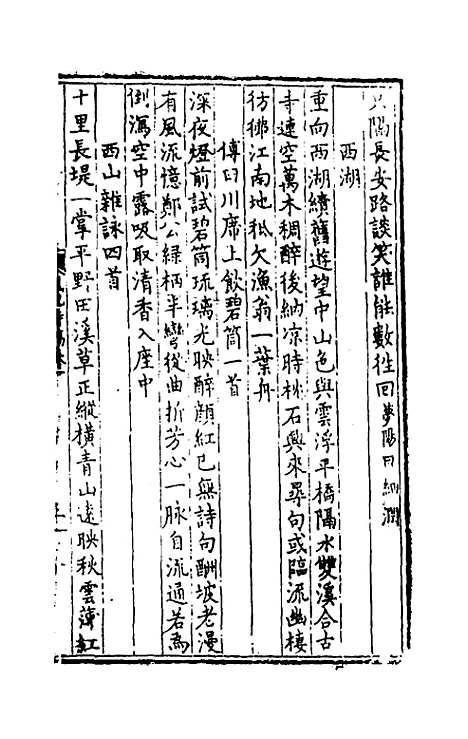 隔長安路談笑誰能數往回夢陽曰細潤
西湖
重向西湖續舊遊望中山色與雲浮平橋隔水雙溪合古
寺連空萬木稠醉後納凉時枕石興來尋句或臨流幽棲
彷彿江南地秪欠漁翁一葉舟
傅曰川席上飲碧筒一首
深夜燈前試碧筒琉璃光映醉顔紅已無詩句酬坡老漫
有風流憶鄭公綠柄半彎從曲折芳心一脉自流通若為
倒瀉空中露吸取清香入座中
西山雜詠四首
十里長堤一掌平野田溪草正縱橫青山遠映秋雲薄紅